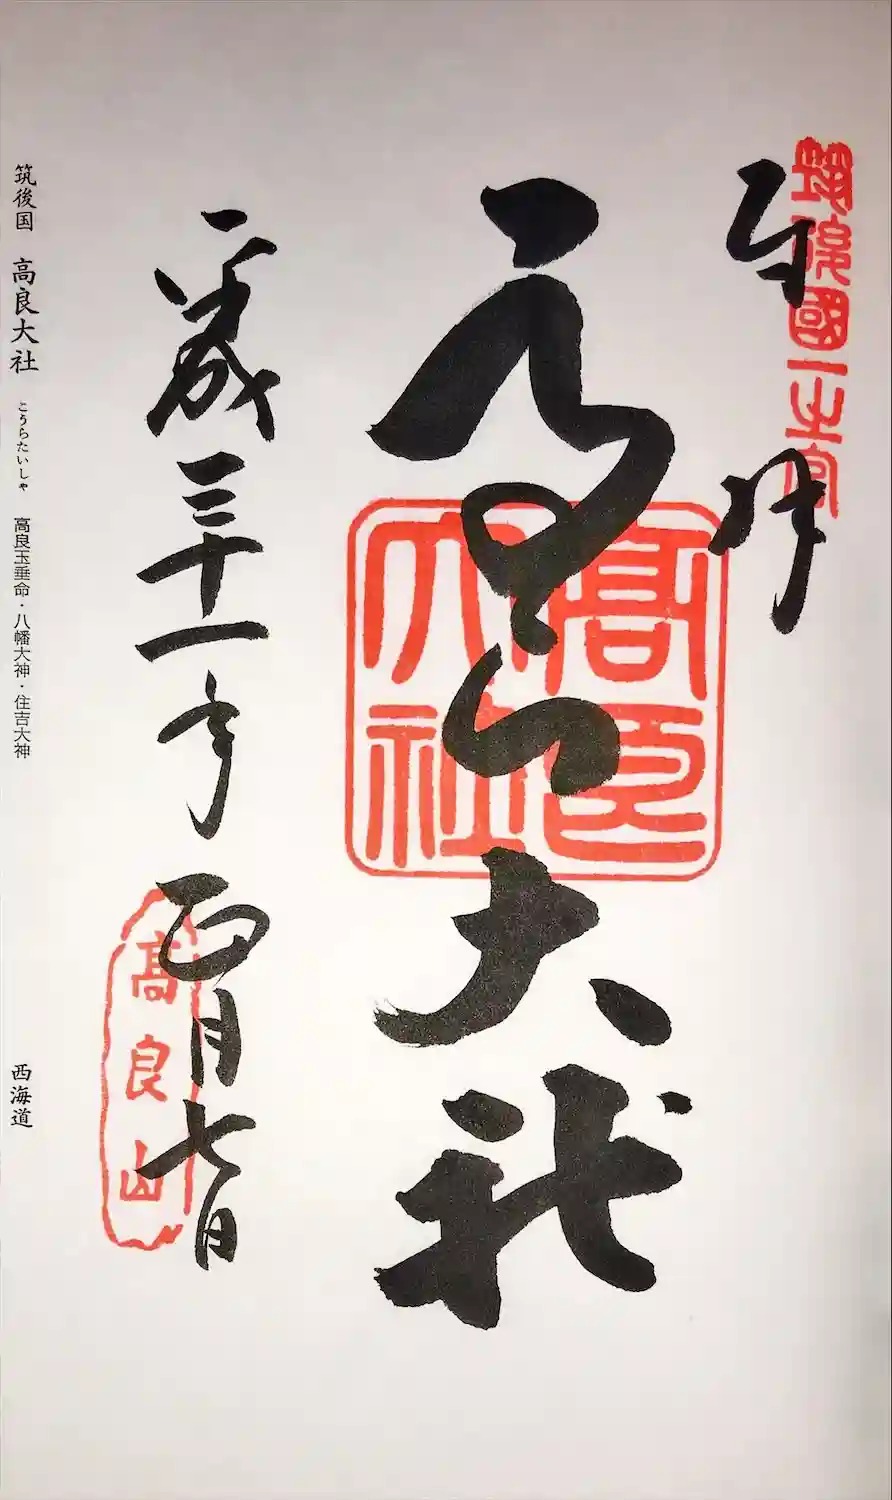 奉拝
筑後國一之宮
高良大社
高良大社
平成三十一年正月七日
高良山
筑後国 高良大社 こうらたいしゃ 高良玉垂命・八幡大神・住吉大神 西海道